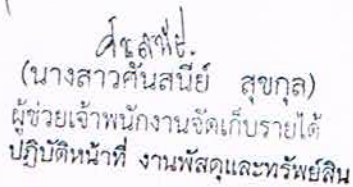 ศันสนีย์.
(นางสาวศันสนีย์ สุขกุล)
ผู้ช่วยเจ้าพนักงานจัดเก็บรายได้
ปฏิบัติหน้าที่ งานพัสดุและทรัพย์สิน